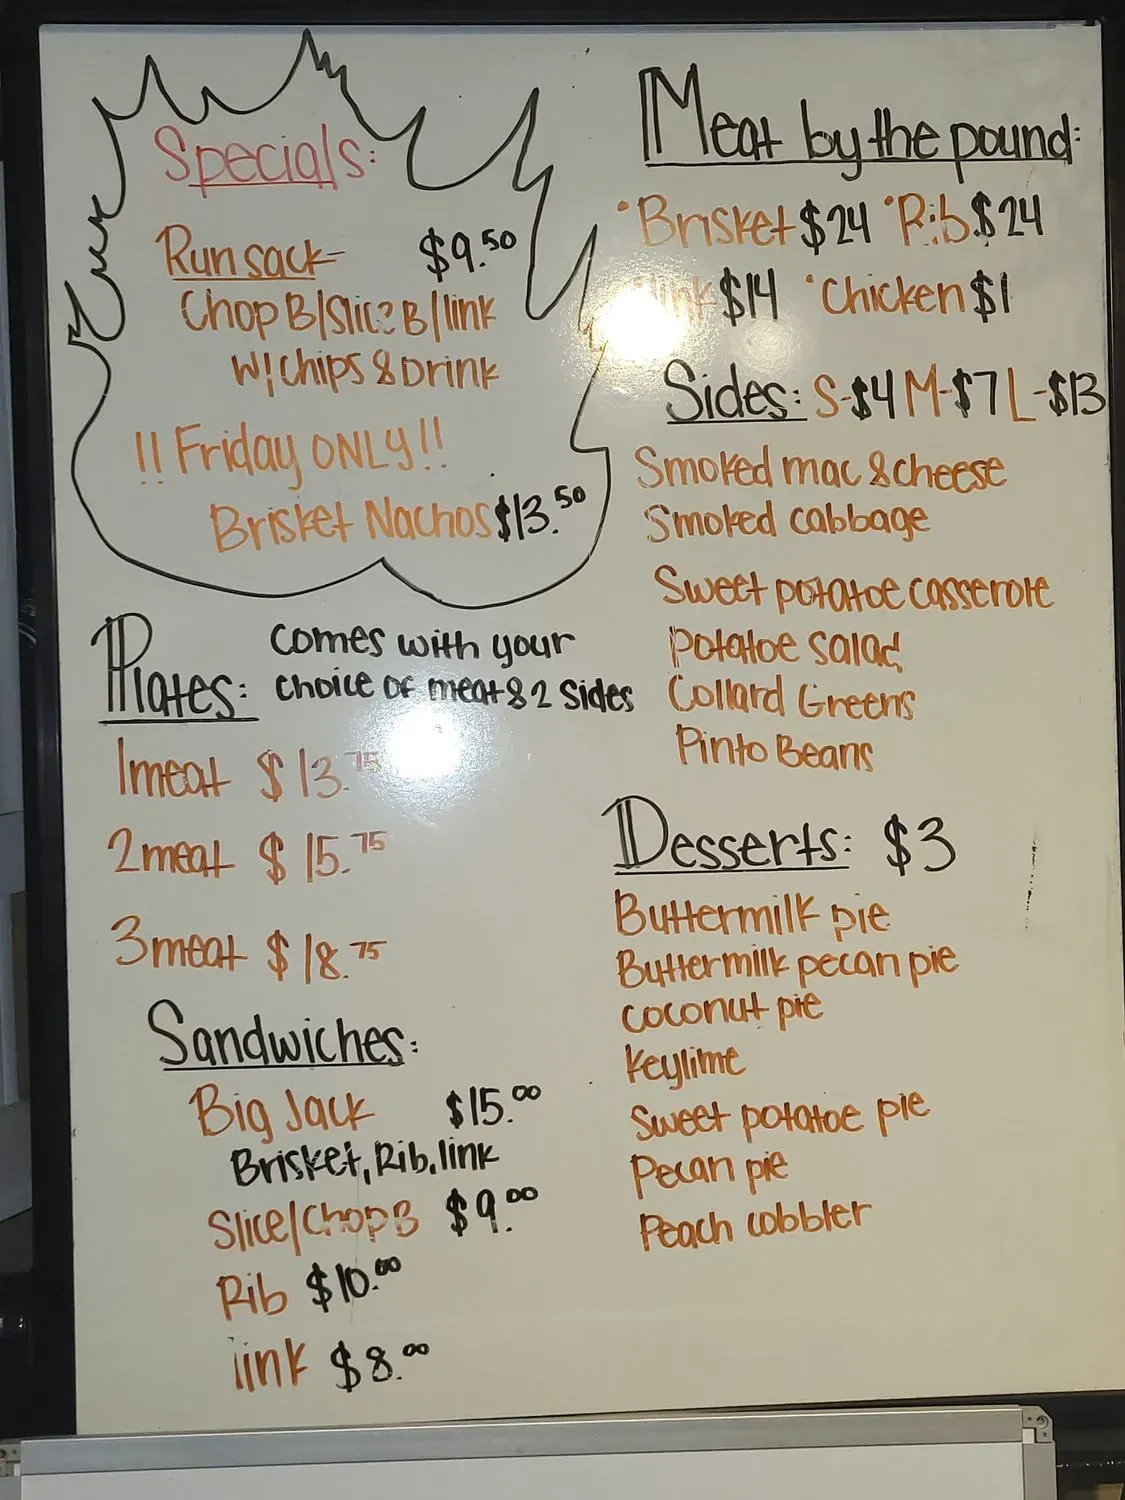 Specials:
Runsack- $9.50
Chop B/Slice B/link
W/chips & Drink
!!Friday ONLY!!
Brisket Nachos $13.50
Plates: comes with your
choice of meat & 2 sides
1meat $13.75
2meat $15.75
3meat $18.75
Sandwiches:
Big Jack $15.00
Brisket, Rib, link
Slice/Chop B $9.00
Rib $10.00
link $8.00
Meat by the pound:
•Brisket $24 •Rib $24
$14 •Chicken $1
Sides: S-$4 M-$7 L-$13
Smoked mac & cheese
Smoked cabbage
Sweet potatoe casserole
Potatoe salad
Collard Greens
Pinto Beans
Desserts: $3
Buttermilk pie
Buttermilk pecan pie
coconut pie
Keylime
Sweet potatoe pie
Pecan pie
Peach cobbler